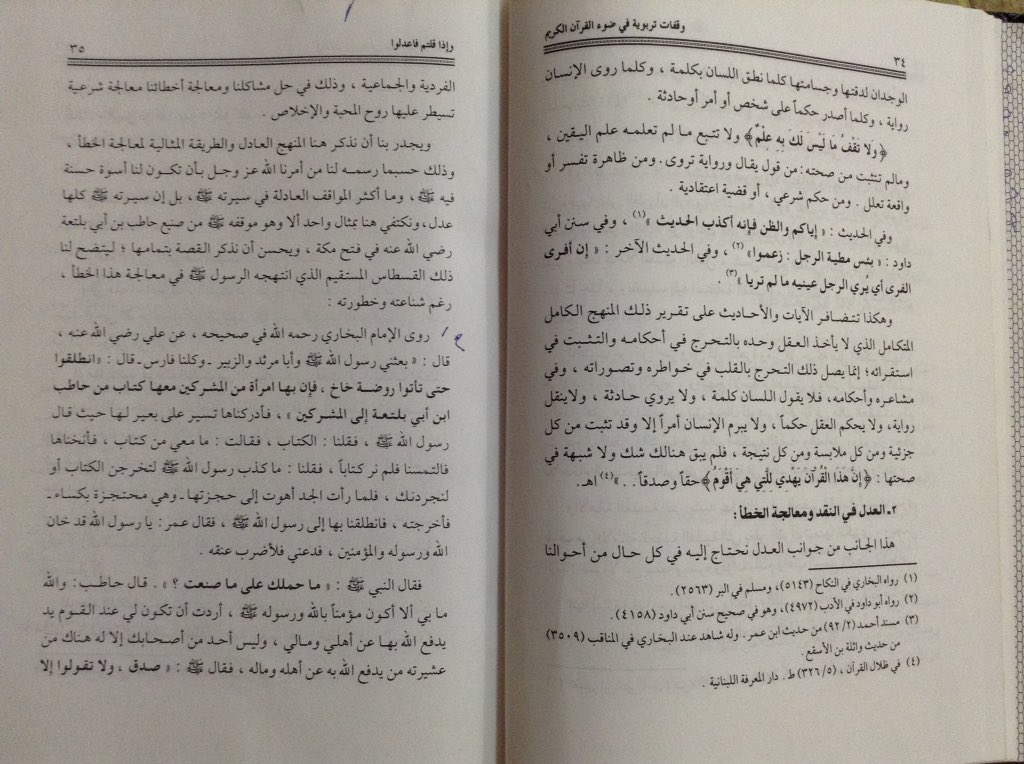 وقفات تربوية في ضوء القرآن الكريم
٣٤
الوجدان لدقتها وجسامتها كلما نطق اللسان بكلمة ، وكلما روى الإنسان
رواية ، وكلما أصدر حكماً على شخص أو أمر أوحادثة .
﴿ولا تَقْفُ مَا لَيْسَ لَكَ بِهِ عِلْمٌ﴾ ولا تتبع ما لم تعلمه علم اليقين ،
ومالم تتثبت من صحته: من قول يقال ورواية تروى. ومن ظاهرة تفسر أو
واقعة تعلل . ومن حكم شرعي ، أو قضية اعتقادية .
وفي الحديث : « إياكم والظن فإنه أكذب الحديث »(١) ، وفي سنن أبي
داود : « بئس مطية الرجل : زعموا»(٢) ، وفي الحديث الآخر : « إن أفرى
الفرى أي يُري الرجل عينيه ما لم تريا »(٣) .
وهكذا تتضافر الآيات والأحاديث على تقرير ذلك المنهج الكامل
المتكامل الذي لا يأخذ العقل وحده بالتحرج في أحكامه والتثبت في
استقرائه؛ إنما يصل ذلك التحرج بالقلب في خواطره وتصوراته ، وفي
مشاعره وأحكامه، فلا يقول اللسان كلمة ، ولا يروي حادثة ، ولاينقل
رواية، ولا يحكم العقل حكماً ، ولا يبرم الإنسان أمراً إلا وقد تثبت من كل
جزئية ومن كل ملابسة ومن كل نتيجة ، فلم يبق هنالك شك ولا شبهة في
صحتها : ﴿إِنَّ هَذَا الْقُرْآنَ يَهْدِي لِلَّتِي هِيَ أَقْوَمُ﴾ حقاً وصدقاً . . »(٤) اهـ.
٢ـ العدل في النقد ومعالجة الخطأ :
هذا الجانب من جوانب العدل نحتاج إليه في كل حال من أحوالنا
(١) رواه البخاري في النكاح (٥١٤٣)، ومسلم في البر (٢٥٦٣) .
(٢) رواه أبو داود في الأدب (٤٩٧٢)، وهو في صحيح سنن أبي داود (٤١٥٨) .
(٣) مسند أحمد (٢/ ٩٢) من حديث ابن عمر . وله شاهد عند البخاري في المناقب (٣٥٠٩)
من حديث واثلة بن الأسقع .
(٤) في ظلال القرآن ، (٥/ ٣٢٦) ط . دار المعرفة اللبنانية .
وإذا قلتم فاعدلوا
٣٥
الفردية والجماعية ، وذلك في حل مشاكلنا ومعالجة أخطائنا معالجة شرعية
تسيطر عليها روح المحبة والإخلاص .
ويجدر بنا أن نذكر هنا المنهج العادل والطريقة المثالية لمعالجة الخطأ ،
وذلك حسبما رسمه لنا من أمرنا الله عز وجل بأن تكون لنا أسوة حسنة
فيه ﷺ ، وما أكثر المواقف العادلة في سيرته ﷺ ، بل إن سيرته ﷺ كلها
عدل، ونكتفي هنا بمثال واحد ألا وهو موقفه ﷺ من صنيع حاطب بن أبي بلتعة
رضي الله عنه في فتح مكة ، ويحسن أن نذكر القصة بتمامها ؛ ليتضح لنا
ذلك القسطاس المستقيم الذي انتهجه الرسول ﷺ في معالجة هذا الخطأ ،
رغم شناعته وخطورته :
روى الإمام البخاري رحمه الله في صحيحه ، عن علي رضي الله عنه ،
قال : «بعثني رسول الله ﷺ وأبا مرثد والزبير ـ وكلنا فارس ـ قال : «انطلقوا
حتى تأتوا روضة خاخ ، فإن بها امرأة من المشركين معها كتاب من حاطب
ابن أبي بلتعة إلى المشركين » ، فأدركناها تسير على بعير لها حيث قال
رسول الله ﷺ ، فقلنا : الكتاب ، فقالت : ما معي من كتاب ، فأنخناها
فالتمسنا فلم نر كتاباً ، فقلنا : ما كذب رسول الله ﷺ لتخرجن الكتاب أو
لنجردنك ، فلما رأت الجد أهوت إلى حجزتها ـ وهي محتجزة بكساء ـ
فأخرجته ، فانطلقنا بها إلى رسول الله ﷺ ، فقال عمر : يا رسول الله قد خان
الله ورسوله والمؤمنين ، فدعني فلأضرب عنقه .
فقال النبي ﷺ : « ما حملك على ما صنعت ؟ » . قال حاطب : والله
ما بي ألا أكون مؤمناً بالله ورسوله ﷺ ، أردت أن تكون لي عند القوم يد
يدفع الله بها عن أهلي ومالي ، وليس أحد من أصحابك إلا له هناك من
عشيرته من يدفع الله به عن أهله وماله ، فقال ﷺ : « صدق ، ولا تقولوا إلا